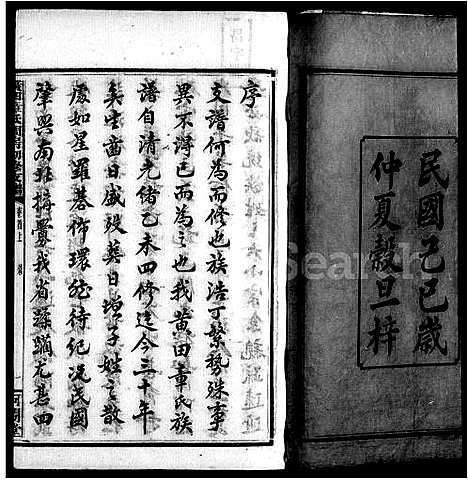 民國己巳歲
仲夏穀旦梓
序
支譜何為而修也族浩丁繁勢殊事
異不得已而為之也我黃田章氏族
譜自清光緒乙未四修迄今三十年
矣生齒日盛歿葬日增子姓之散
處如星羅棊佈環
待紀況民國
肇興南北搆釁我省蹂躪尤甚四
卷首上
序
Search